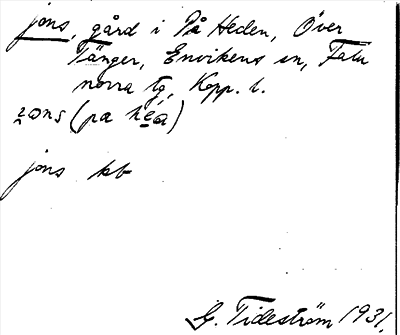 jons, gård i På Heden, Över
Tänger, Envikens sn, Falu
norra tg, Kopp. l.
jons kb
G. Tideström 1931.